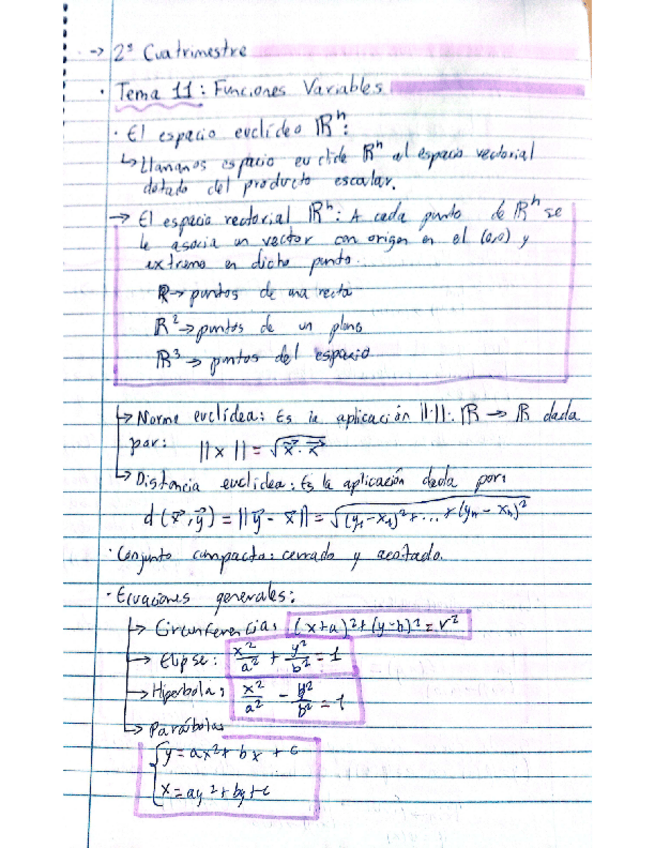 → 2º Cuatrimestre
· Tema 11: Funciones Variables
· El espacio euclídeo ℝⁿ:
↳ Llamamos espacio euclide ℝⁿ al espacio vectorial
dotado del producto escalar.
→ El espacio vectorial ℝⁿ: A cada punto de ℝⁿ se
le asocia un vector con origen en el (0,0) y
extremo en dicho punto.
ℝ → puntos de una recta
ℝ² → puntos de un plano
ℝ³ → puntos del espacio
↳ Norma euclídea: Es la aplicación ||·||: ℝ → ℝ dada
por: ||x|| = √(x⃗ · x⃗)
↳ Distancia euclídea: Es la aplicación dada por:
d(x⃗, y⃗) = ||y⃗ - x⃗|| = √((y₁-x₁)² + ... + (yₙ - xₙ)²)
· Conjunto compacto: cerrado y acotado.
· Ecuaciones generales:
↳ Circunferencia: (x+a)²+(y-b)² = r²
→ Elipse: x²/a² + y²/b² = 1
→ Hiperbola: x²/a² - y²/b² = 1
↳ Parábolas
{ y = ax² + bx + c
x = ay² + by + c